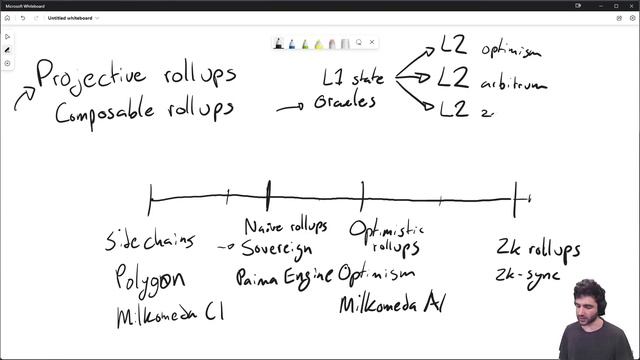 Microsoft Whiteboard
Untitled whiteboard
Projective rollups
Composable rollups
L1 state
Oracles
L2 optimism
L2 arbitrum
L2 z
Sidechains
Polygon
Milkomeda C1
Naive rollups
Sovereign
Paima Engine
Optimistic
rollups
Optimism
Milkomeda A1
Zk rollups
Zk-sync